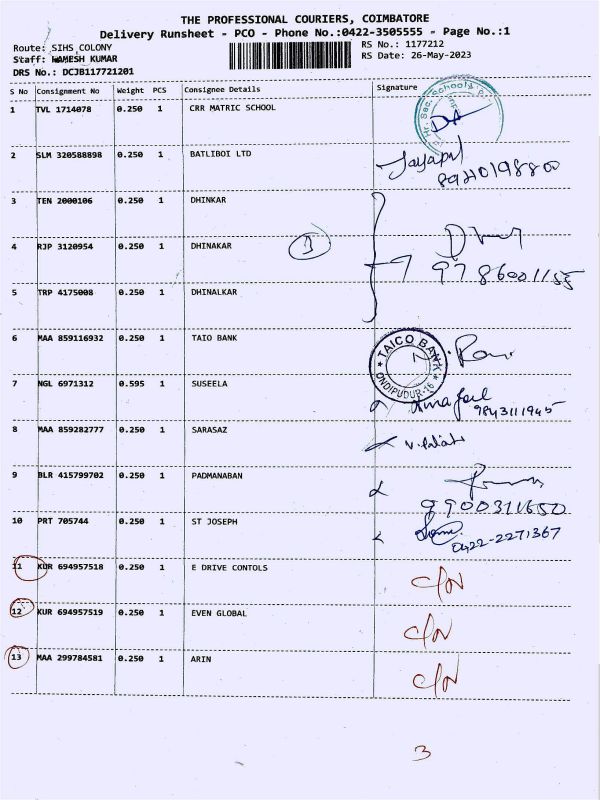 THE PROFESSIONAL COURIERS, COIMBATORE
Delivery Runsheet - PCO - Phone No.:0422-3505555 - Page No.:1
Route: SIHS COLONY RS No.: 1177212
Staff: RAMESH KUMAR RS Date: 26-May-2023
DRS No.: DCJB117721201
S No Consignment No Weight PCS Consignee Details Signature
1 TVL 1714078 0.250 1 CRR MATRIC SCHOOL
Hr. Sec. School
2 SLM 320588898 0.250 1 BATLIBOI LTD
3 TEN 2000106 0.250 1 DHINKAR
4 RJP 3120954 0.250 1 DHINAKAR 3
9786001155
5 TRP 4175008 0.250 1 DHINALKAR
6 MAA 859116932 0.250 1 TAIO BANK
TAICO BANK
ONDIPUDUR-16
7 NGL 6971312 0.595 1 SUSEELA
9843111945
8 MAA 859282777 0.250 1 SARASAZ
9 BLR 415799702 0.250 1 PADMANABAN
9900311650
10 PRT 705744 0.250 1 ST JOSEPH
0422-2271367
11 KUR 694957518 0.250 1 E DRIVE CONTOLS C/N
12 KUR 694957519 0.250 1 EVEN GLOBAL C/N
13 MAA 299784581 0.250 1 ARIN C/N
3